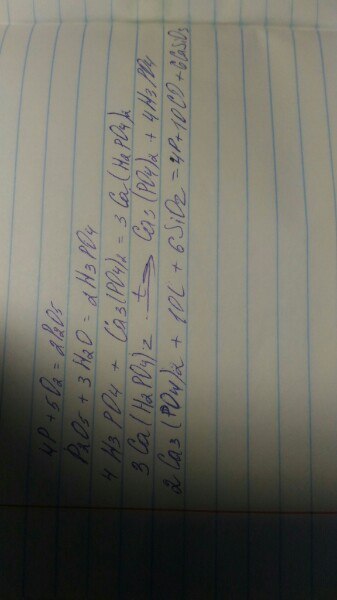 4P + 5O2 = 2P2O5
P2O5 + 3H2O = 2H3PO4
4H3PO4 + Ca3(PO4)2 = 3Ca(H2PO4)2
3Ca(H2PO4)2 t→ Ca3(PO4)2 + 4H3PO4
2Ca3(PO4)2 + 10C + 6SiO2 = 4P + 10CO + 6CaSiO3